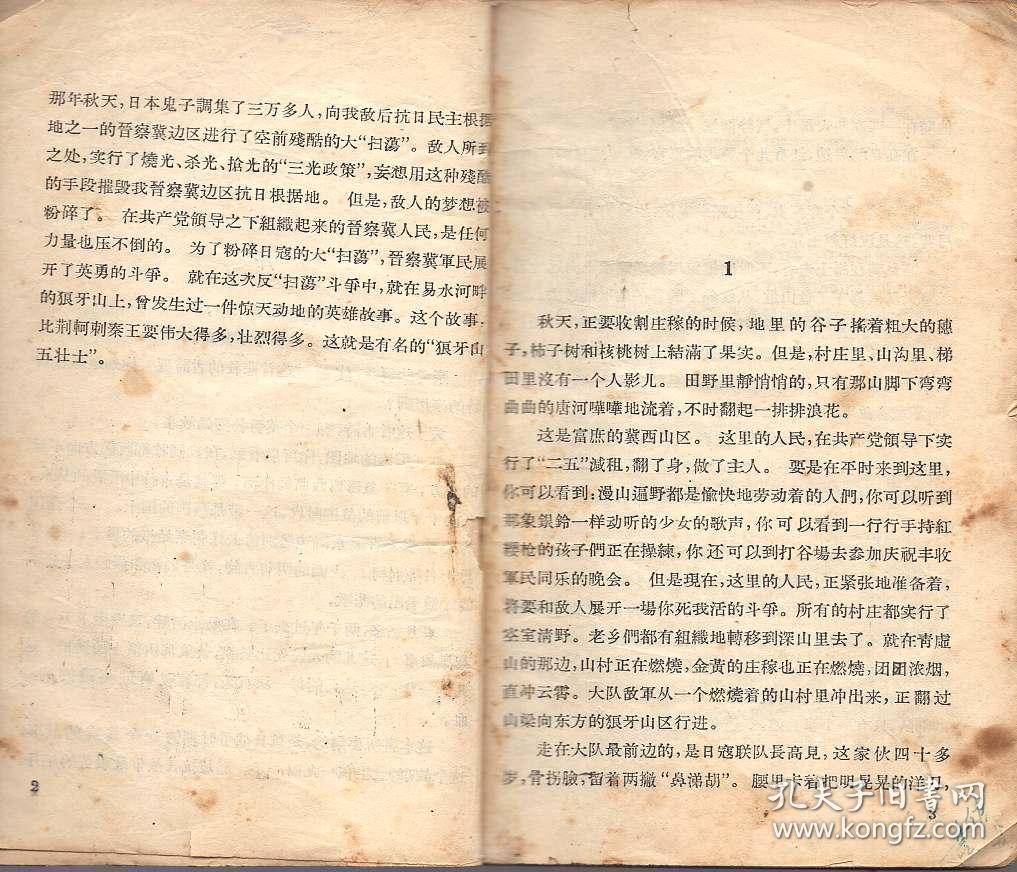 那年秋天，日本鬼子調集了三万多人，向我敌后抗日民主根据
地之一的晉察冀边区进行了空前殘酷的大“扫蕩”。敌人所到
之处，实行了燒光、杀光、搶光的“三光政策”，妄想用这种殘酷
的手段摧毁我晉察冀边区抗日根据地。 但是，敌人的梦想被
粉碎了。 在共产党領导之下組織起来的晉察冀人民，是任何
力量也压不倒的。 为了粉碎日寇的大“扫蕩”，晉察冀軍民展
开了英勇的斗爭。 就在这次反“扫蕩”斗爭中，就在易水河畔
的狼牙山上，曾发生过一件惊天动地的英雄故事。这个故事，
比荆軻刺秦王要伟大得多，壮烈得多。这就是有名的“狼牙山
五壮士”。
2
1
秋天，正要收割庄稼的时候，地里的谷子搖着粗大的穗
子，柿子树和核桃树上結滿了果实。但是，村庄里、山沟里、梯
田里沒有一个人影儿。 田野里靜悄悄的，只有那山脚下弯弯
曲曲的唐河嘩嘩地流着，不时翻起一排排浪花。
这是富庶的冀西山区。 这里的人民，在共产党領导下实
行了“二五”減租，翻了身，做了主人。 要是在平时来到这里，
你可以看到：漫山遍野都是愉快地劳动着的人們，你可以听到
那象銀鈴一样动听的少女的歌声，你可以看到一行行手持紅
纓枪的孩子們正在操練，你还可以到打谷場去参加庆祝丰收
軍民同乐的晚会。 但是現在，这里的人民，正紧张地准备着，
将要和敌人展开一場你死我活的斗爭。所有的村庄都实行了
空室清野。老乡們都有組織地轉移到深山里去了。就在青虛
山的那边，山村正在燃燒，金黃的庄稼也正在燃燒，团团浓烟，
直冲云霄。大队敌軍从一个燃燒着的山村里冲出来，正翻过
山梁向东方的狼牙山区行进。
走在大队最前边的，是日寇联队长高見，这家伙四十多
岁，骨拐臉，留着两撇“鼻涕胡”。腰里卡着把明晃晃的洋刀，
3
孔夫子旧书网
www.kongfz.com